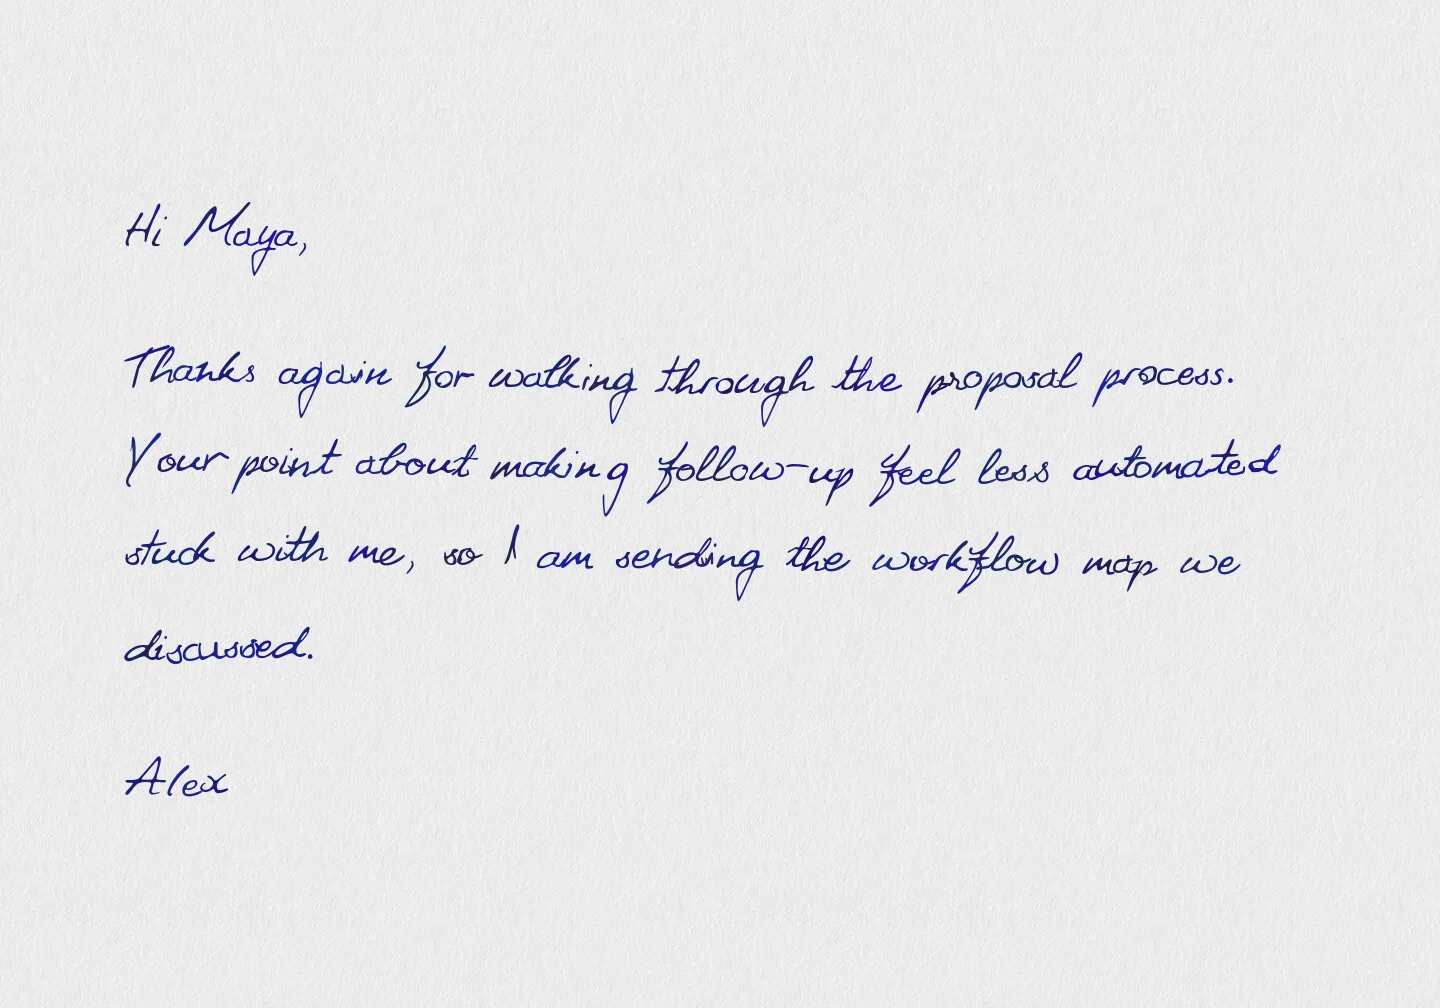 Hi Maya,
Thanks again for walking through the proposal process.
Your point about making follow-up feel less automated
stuck with me, so I am sending the workflow map we
discussed.
Alex